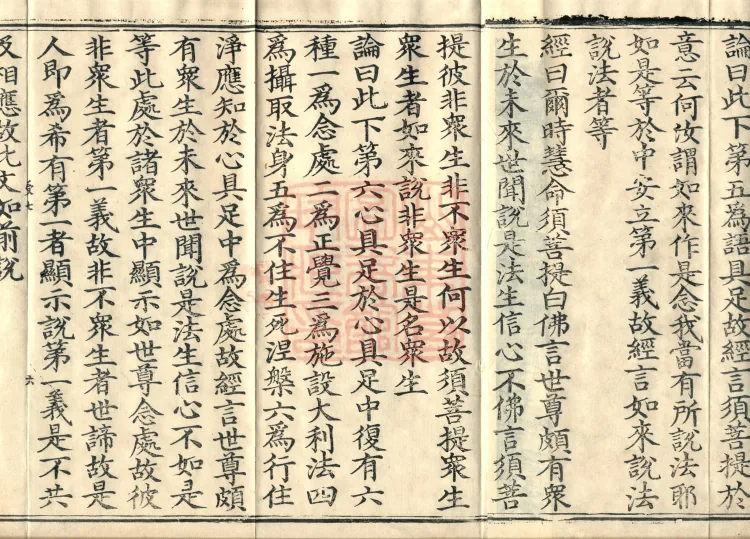 論曰此下第五為語具足故經言須菩提於
意云何汝謂如來作是念我當有所說法耶
如是等於中安立第一義故經言如來說法
說法者等
經曰爾時慧命須菩提白佛言世尊頗有眾
生於未來世聞說是法生信心不佛言須菩
提彼非眾生非不眾生何以故須菩提眾生
眾生者如來說非眾生是名眾生
論曰此下第六心具足於心具足中復有六
種一為念處二為正覺三為施設大利法四
為攝取法身五為不住生死涅槃六為行住
淨應知於心具足中為念處故經言世尊頗
有眾生於未來世聞說是法生信心不如是
等此處於諸眾生中顯示如世尊念處故彼
非眾生者第一義故非不眾生者世諦故是
人即為希有第一者顯示說第一義是不共
及相應故此文如前說
六